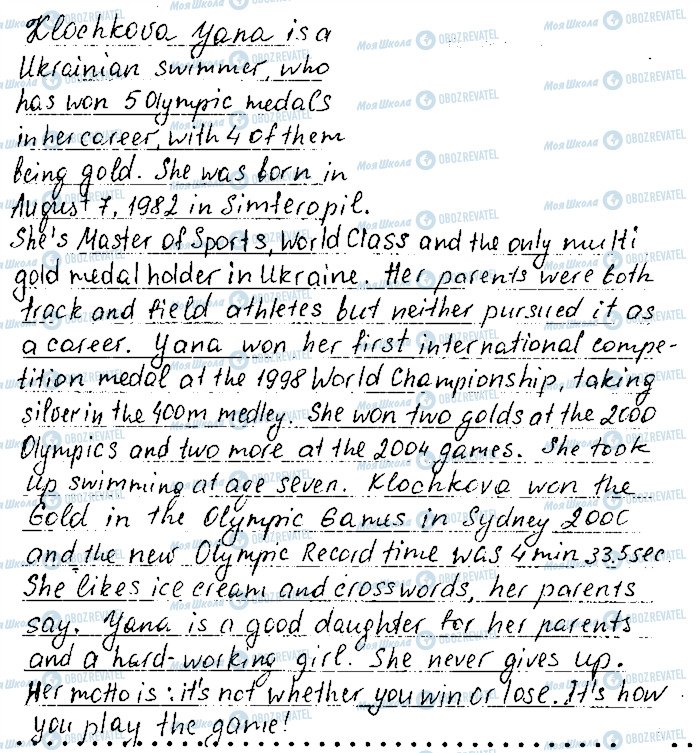 Klochkova Yana is a
Ukrainian swimmer, who
has won 5 Olympic medals
in her career, with 4 of them
being gold. She was born in
August 7, 1982 in Simferopil.
She's Master of Sports, World Class and the only multi
gold medal holder in Ukraine. Her parents were both
track and field athletes but neither pursued it as
a career. Yana won her first international compe-
tition medal at the 1998 World Championship, taking
silver in the 400m medley. She won two golds at the 2000
Olympics and two more at the 2004 games. She took
up swimming at age seven. Klochkova won the
Gold in the Olympic Games in Sydney 2000
and the new Olympic Record time was 4 min 33.5 sec
She likes ice cream and crosswords, her parents
say. Yana is a good daughter for her parents
and a hard-working girl. She never gives up.
Her motto is: it's not whether you win or lose. It's how
you play the game!
Моя Школа OBOZREVATEL